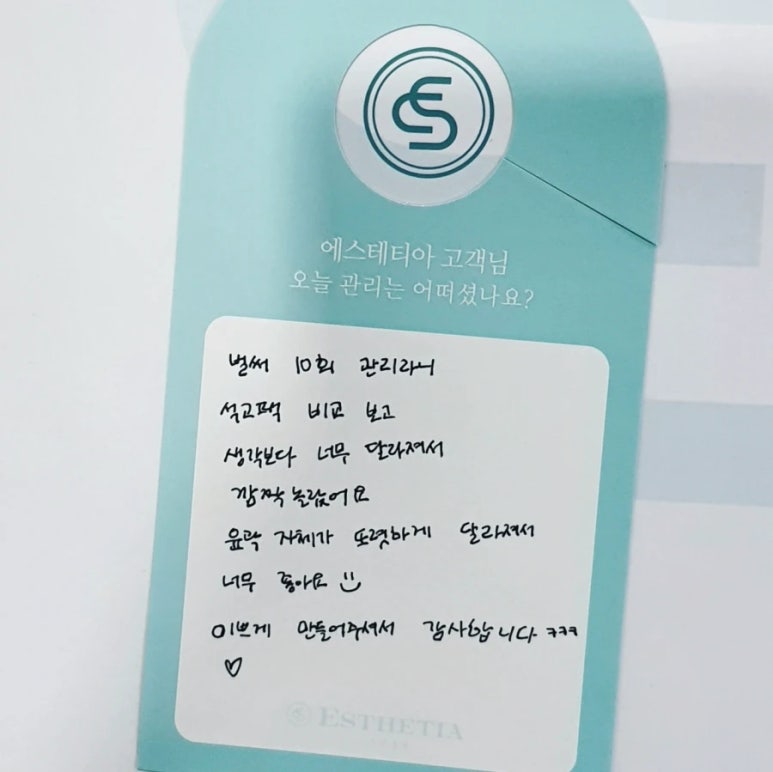 에스테티아 고객님
오늘 관리는 어떠셨나요?
벌써 10회 관리라니
석고팩 비교 보고
생각보다 너무 달라져서
깜짝 놀랐어요
윤곽 자체가 또렷하게 달라져서
너무 좋아요
이쁘게 만들어주셔서 감사합니다 ㅋㅋㅋ
♡
ESTHETIA